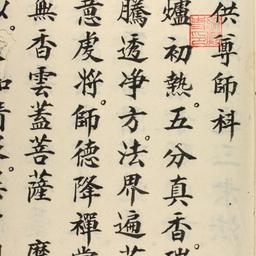 供尊師科
爐初熱。五分真香
騰透净方。法界遍
意虔將。師德降禪
無香雲蓋菩薩